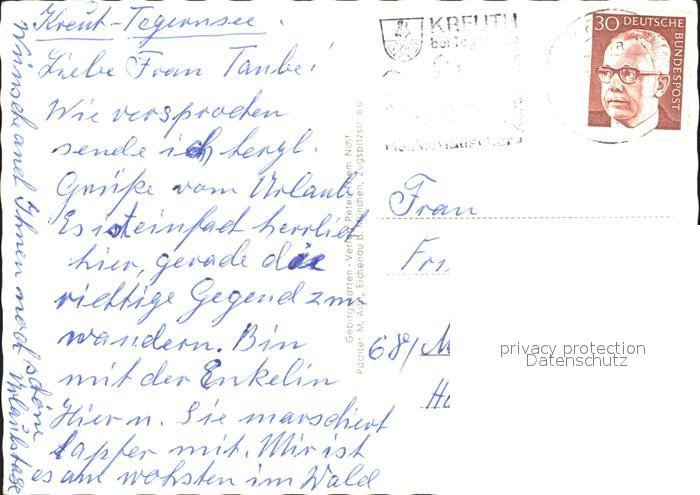 Kreut-Tegernsee.
Liebe Frau Taube!
Wie versprochen
sende ich herzl.
Grüße vom Urlaub.
Es ist einfach herrlich
hier, gerade die
richtige Gegend zum
wandern. Bin
mit der Enkelin
hier u. Sie marschiert
tapfer mit. Mir ist
es am wohsten im Wald
Wünsche auch Ihnen noch schöne
Urlaubstage
KREUTH
30 DEUTSCHE
BUNDESPOST
Gebirgskarten-Verlag Peter Nchf.
Pächter M. Eichenau b. München, Zugspitzstr. 60
Frau
68/
privacy protection
Datenschutz